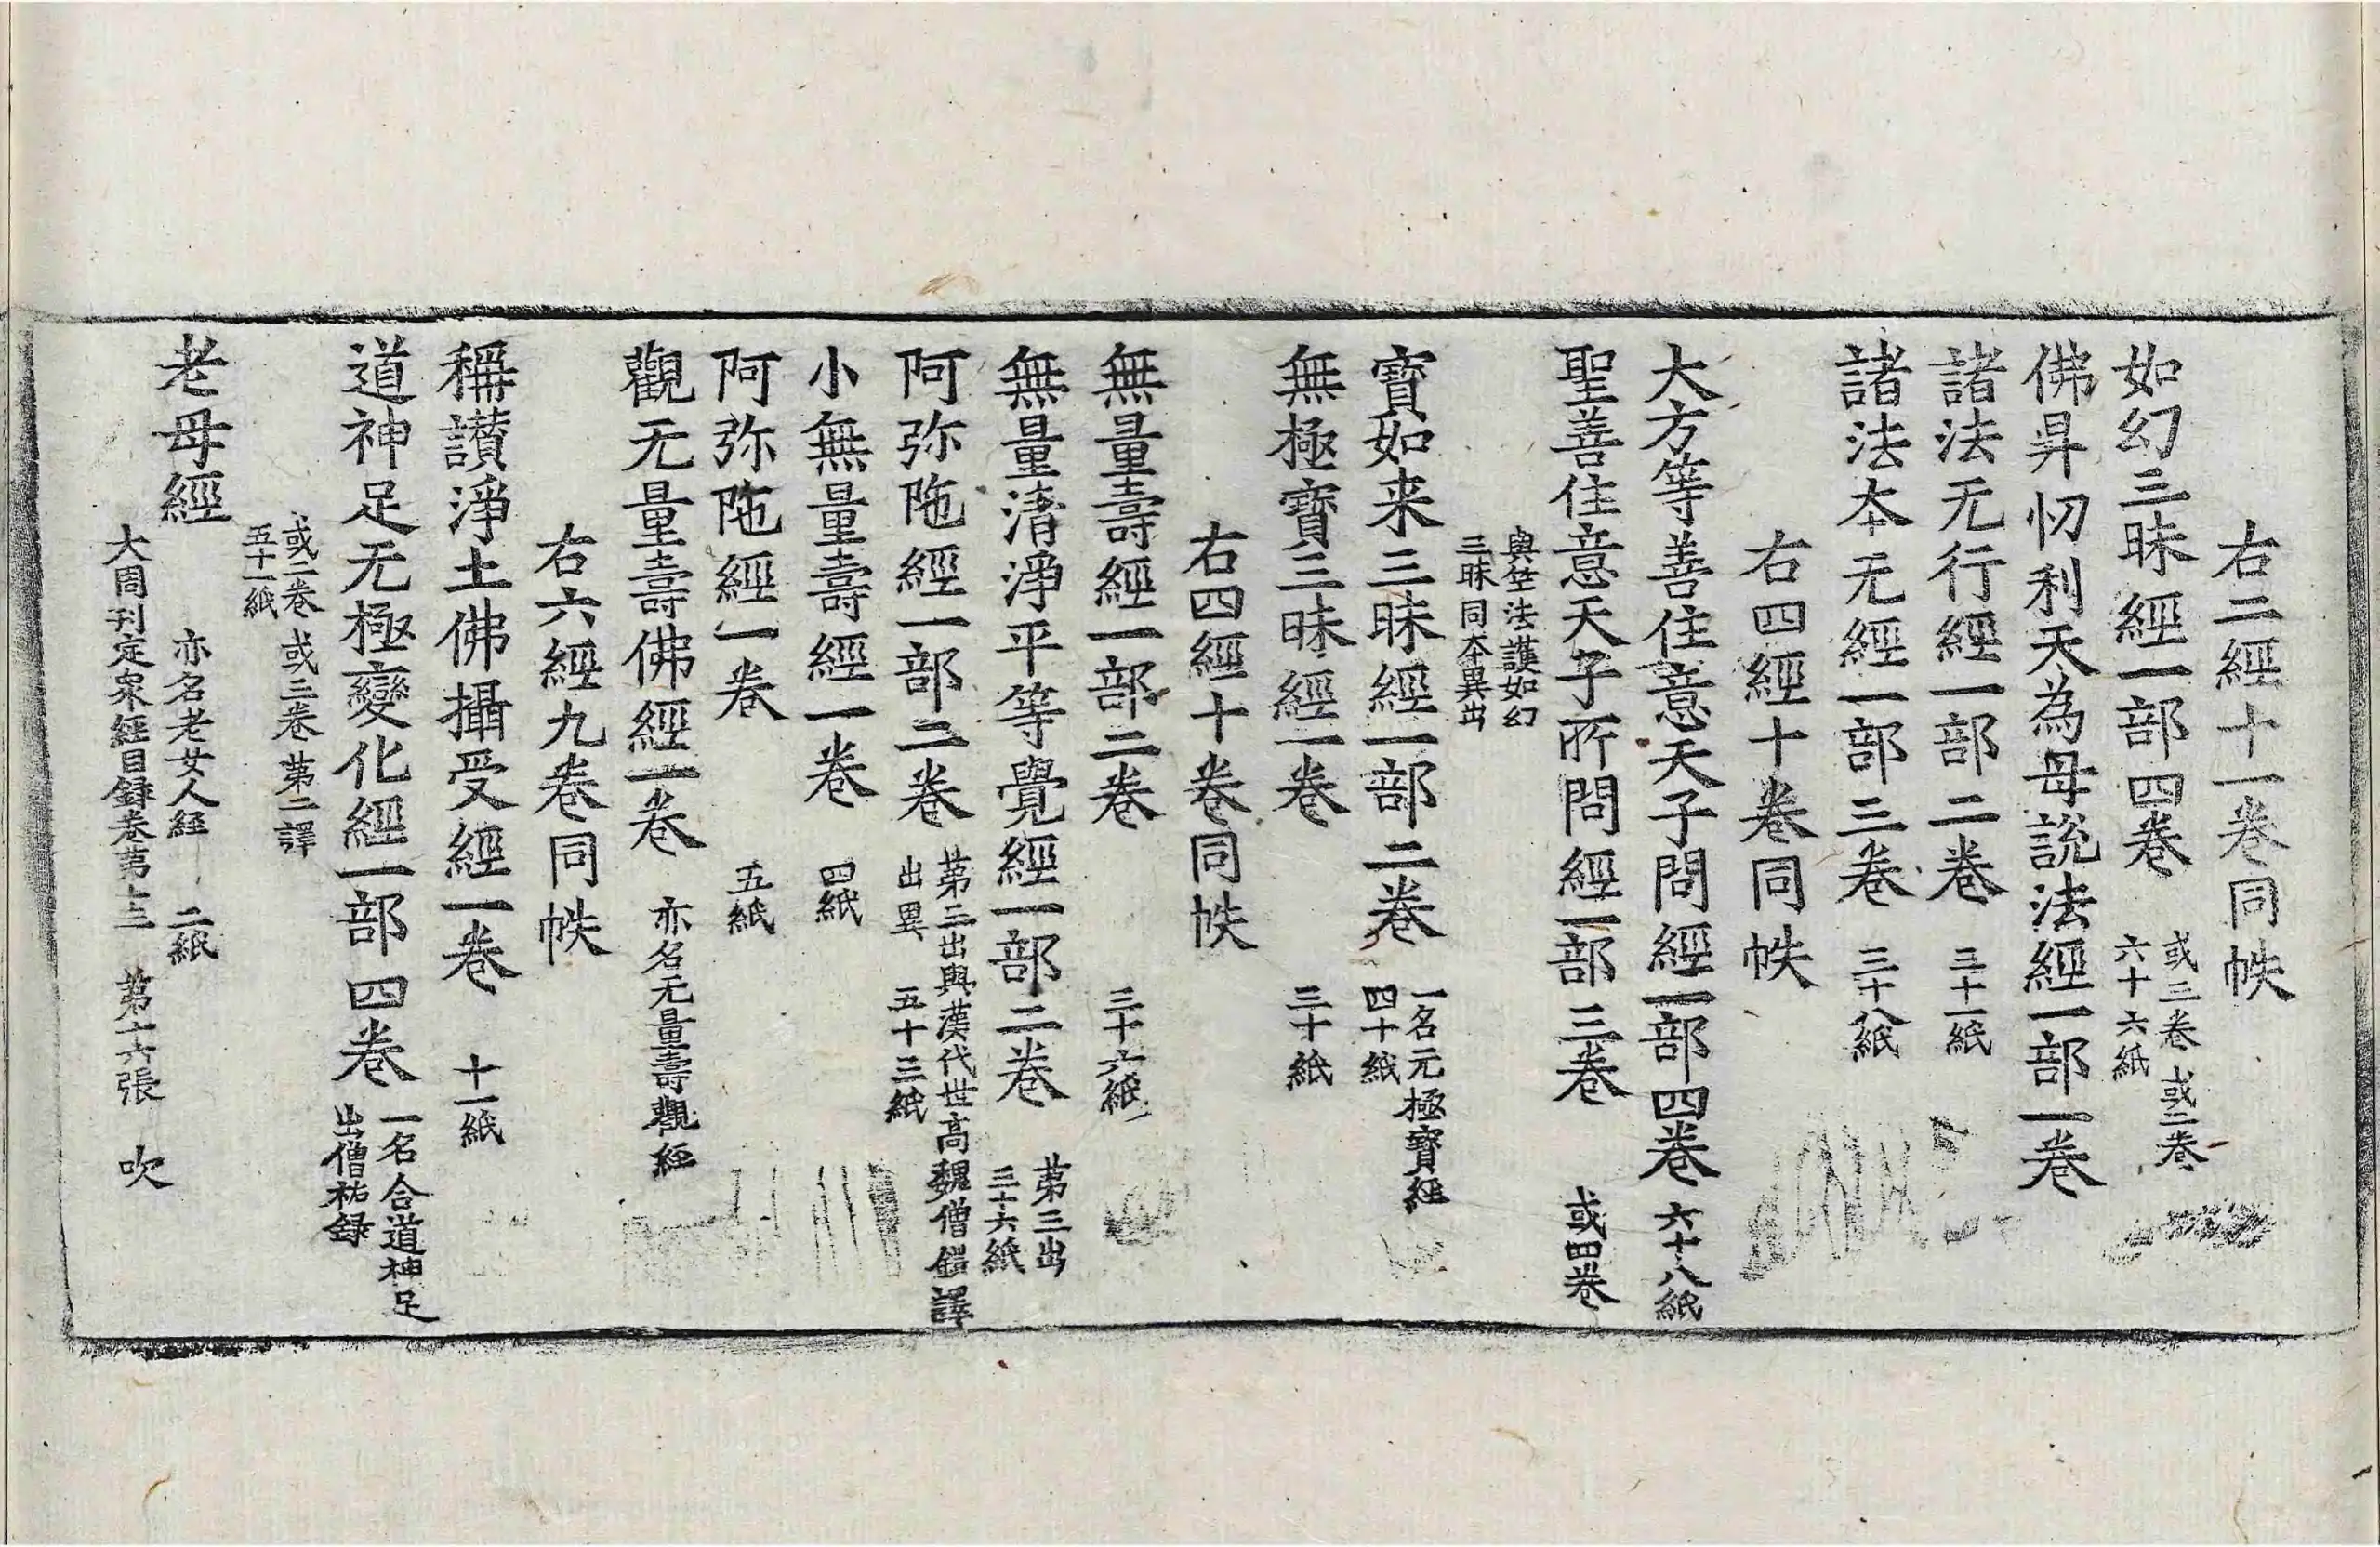 右二經十一卷同帙
如幻三昧經一部四卷 或三卷 或二卷
六十六紙
佛昇忉利天為母説法經一部一卷
諸法无行經一部二卷 三十一紙
諸法夲无經一部三卷 三十八紙
右四經十卷同帙
大方等善住意天子問經一部四卷 六十八紙
聖善住意天子所問經一部三卷 或四卷
與竺法護如幻
三昧同夲異出
寶如来三昧經一部二卷 一名无極寶經
四十紙
無極寶三昧經一卷 三十紙
右四經十卷同帙
無量壽經一部二卷 三十六紙
無量清淨平等覺經一部二卷 苐三出
三十六紙
阿弥陁經一部二卷 苐三出與漢代世高魏僧鎧譯
出異 五十三紙
小無量壽經一卷 四紙
阿弥陁經一卷 五紙
觀无量壽佛經一卷 亦名无量壽觀經
右六經九卷同帙
稱讚淨土佛攝受經一卷 十一紙
道神足无極變化經一部四卷 一名合道神足
出僧祐録
或二卷 或三卷 苐二譯
五十一紙
老母經 亦名老女人經 二紙
大周刊定衆經目録卷苐十三 苐十六張 吹